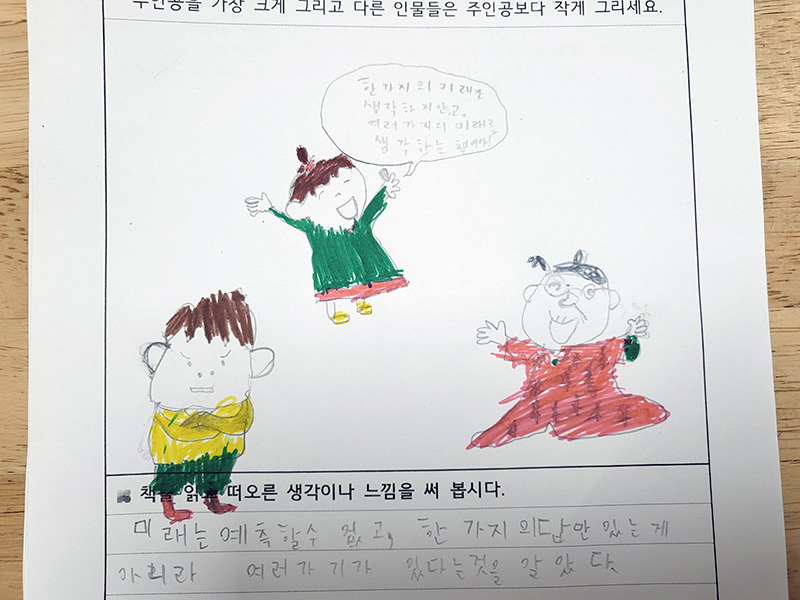 주인공을 가장 크게 그리고 다른 인물들은 주인공보다 작게 그리세요.
한 가지의 미래만
생각하지 안고,
여러 가지의 미래를
생각하는 책이야!
책을 읽고 떠오른 생각이나 느낌을 써 봅시다.
미래는 예측할수 없고, 한 가지 의답만 있는게
아뇌라 여러가기가 있다는것을 알 았 다.